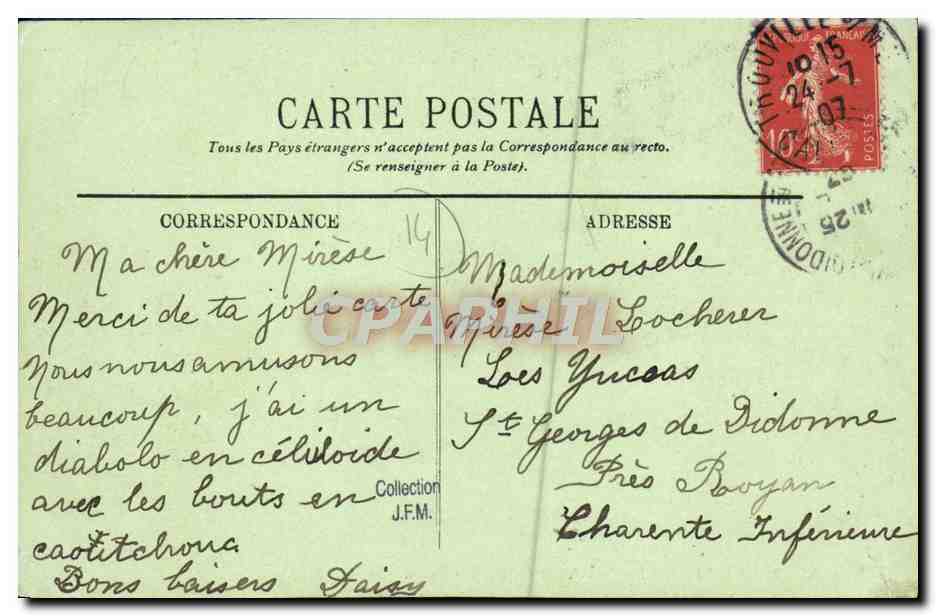 CARTE POSTALE
Tous les Pays étrangers n'acceptent pas la Correspondance au recto.
(Se renseigner à la Poste).
CORRESPONDANCE
14
Ma chère Mirèse
Merci de ta jolie carte
Nous nous amusons
beaucoup, j'ai un
diabolo en céliloïde
avec les bouts en
caoutchouc
Bons baisers Daisy
Collection
J.F.M.
ADRESSE
Mademoiselle
Mirèse Locherer
Les Yuccas
St Georges de Didonne
Près Royan
Charente Inférieure
CPAPHIL
TROUVILLE
15
24-7
07
10
POSTES
25
DIDONNE